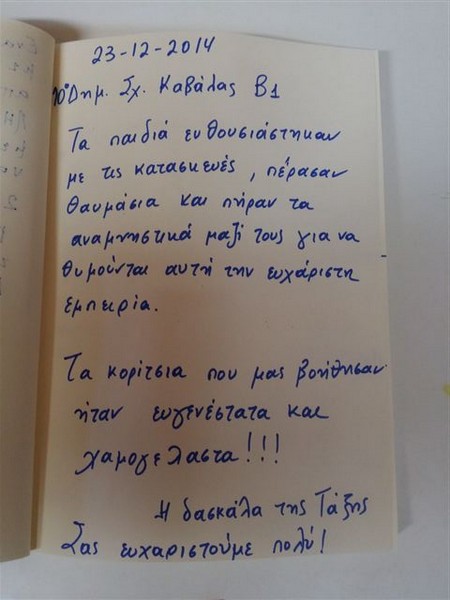 23-12-2014
10° Δημ. Σχ. Καβάλας Β1
Τα παιδιά ενθουσιάστηκαν
με τις κατασκευές, πέρασαν
θαυμάσια και πήραν τα
αναμνηστικά μαζί τους για να
θυμούνται αυτή την ευχάριστη
εμπειρία.
Τα κορίτσια που μας βοήθησαν
ήταν ευγενέστατα και
χαμογελαστα!!!
Η δασκάλα της Τάξης
Σας ευχαριστούμε πολύ!